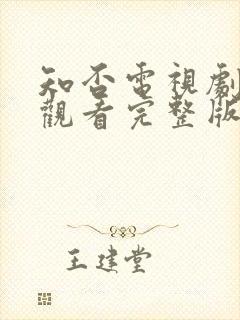 知否電視劇
觀看完整版
王建堂